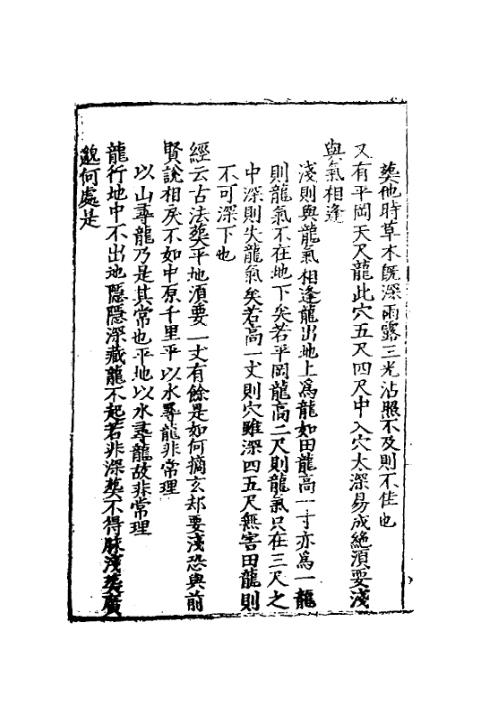 葬他時草木既深雨露三光沾照不及則不佳也
又有平岡天尺龍此穴五尺四尺中入穴太深易成絶須要淺
與氣相逢
淺則與龍氣相逢龍出地上爲龍如田龍高一寸亦爲一龍
則龍氣不在地下矣若平岡龍高二尺則龍氣只在三尺之
中深則失龍氣矣若高一丈則穴雖深四五尺無害田龍則
不可深下也
經云古法葬平地須要一丈有餘是如何摘玄却要淺恐與前
賢說相戾不如中原千里平以水尋龍非常理
以山尋龍乃是其常也平地以水尋龍故非常理
龍行地中不出地隱隱深藏龍不起若非深葬不得脉淺葬廣
觀何處是